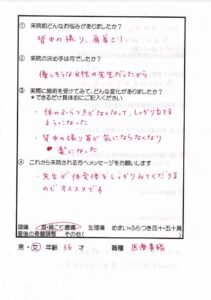 ① 来院前どんなお悩みがありましたか?
背中の張り、肩首こり
② 来院の決め手は何でしたか?
優しそうな女性の先生だったから
③ 実際に施術を受けてみて、どんな変化がありましたか?
*できるだけ具体的にご記入ください
・体のふらつきがなくなって、しっかり立てる
ようになった
・背中の張り等が気にならなくなり
楽になった
④ これから来院される方へメッセージをお願いします
・先生が体全体をしっかりみてくださる
のでオススメです
頭痛 首・肩こり 腰痛 生理痛 めまい・ふらつき 四十・五十肩
産後の骨盤調整 その他( )
男・女 年齢 36 才 職種 医療事務